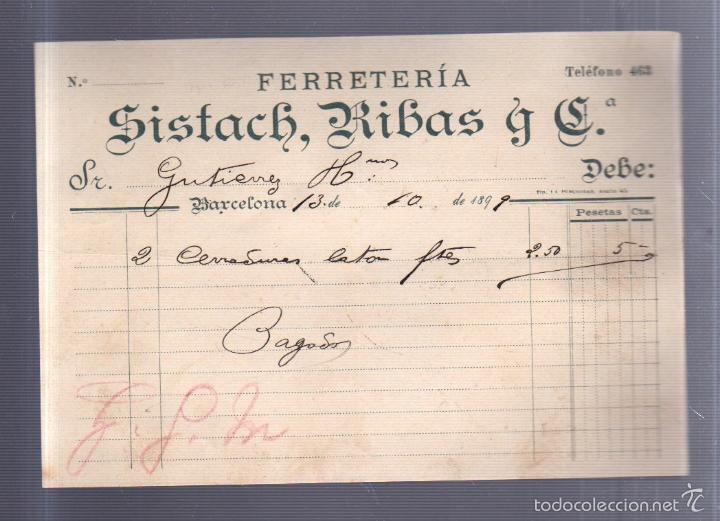 N.º FERRETERÍA Teléfono 463
Sistach, Ribas y C.ª
Sr. Gutierrez H.nos Debe:
Barcelona 13 de 10 de 1899
Pesetas Cts.
2 Cerraduras laton ftes 2.50 5 —
Pagado
todocoleccion.net